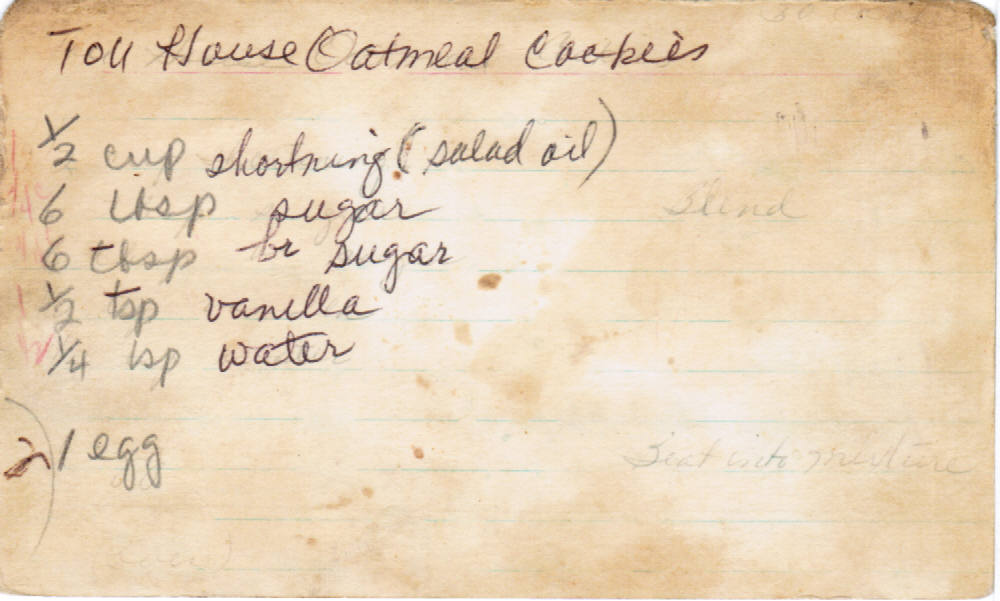 Toll House Oatmeal Cookies
1/2 cup shortning (salad oil)
6 tbsp sugar
Blend
6 tbsp br sugar
1/2 tsp vanilla
1/4 tsp water
2) 1 egg
Beat into mixture